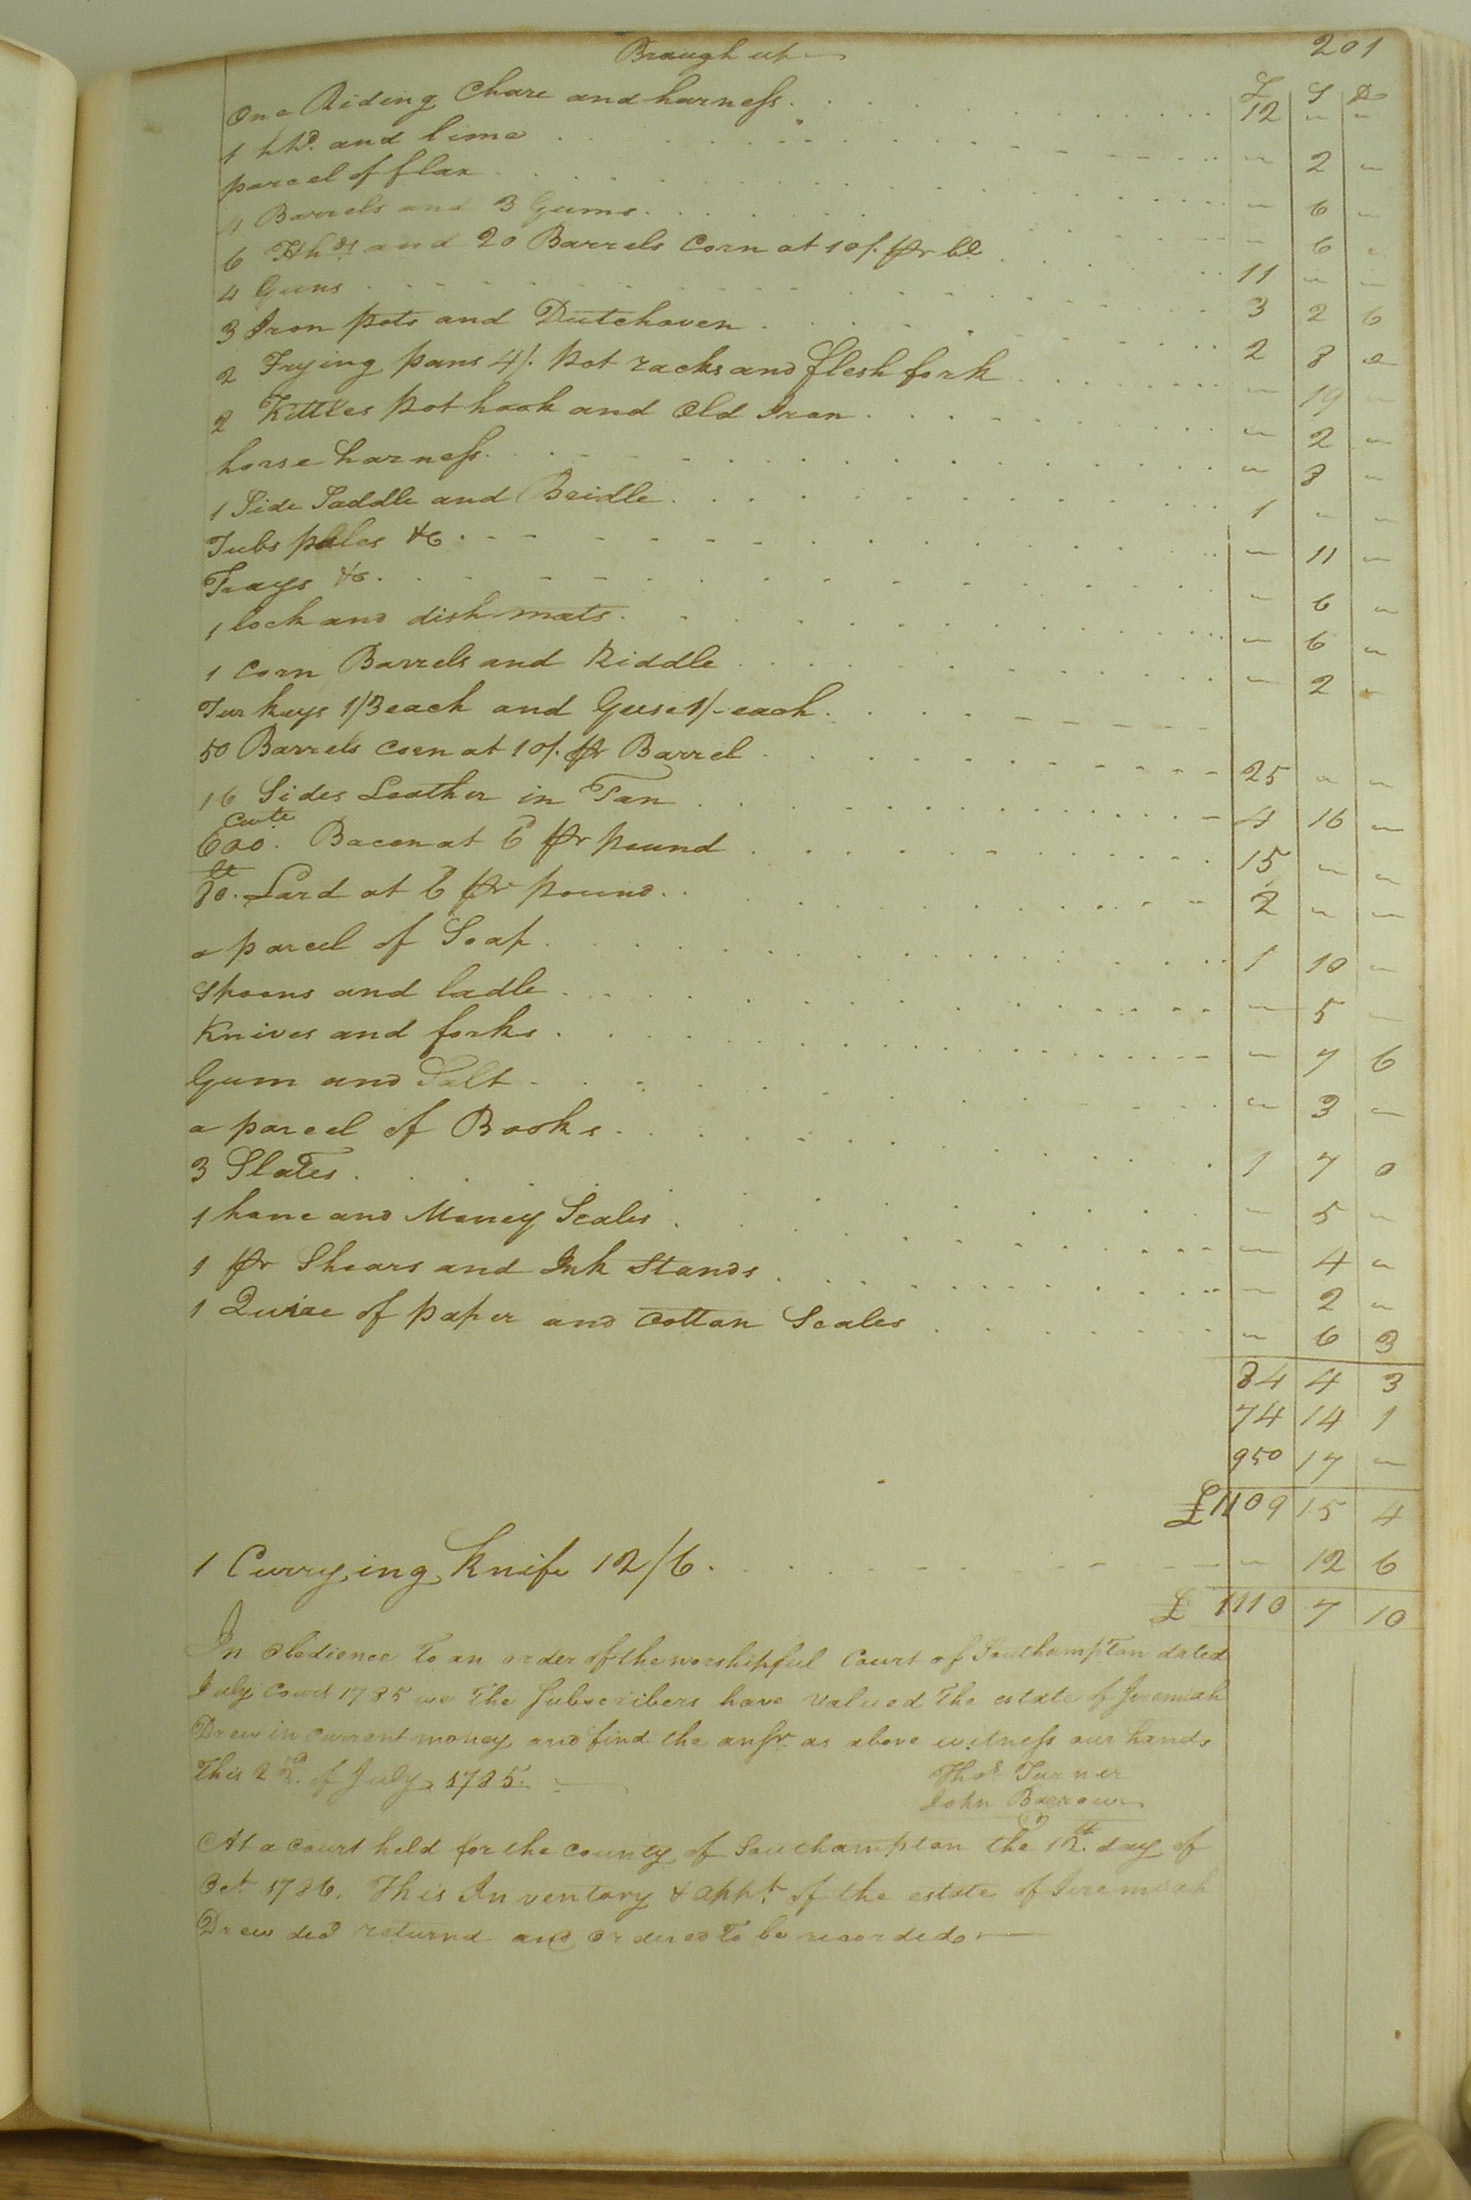 Braugh up 201
£ S D
One Riding Chare and harness 12 " "
1 hhd. and lime " 2 "
parcel of flax " 6 "
4 Barrels and 3 Gums " 6 "
6 Hhds and 20 Barrels Corn at 10/. pr bl 11 " "
4 Guns 3 2 6
3 Iron pots and Dutchoven 2 8 "
2 Frying pans 4/. Pot racks and flesh fork " 19 "
2 Kittles pot hook and Old Iron " 2 "
horse harness " 8 "
1 Side Saddle and Bridle 1 " "
Tubs pales &c " 11 "
Trays &c " 6 "
1 lock and dish mats " 6 "
1 Corn Barrels and Riddle " 2 "
Turkeys 1/3 each and Geese 1/- each
50 Barrels Corn at 10/. pr Barrel 25 " "
16 Sides Leather in Tan 4 16 "
600. cwte Bacon at 6d pr pound 15 " "
80. lt Lard at 6 pr pound 2 " "
a parcel of Soap 1 10 "
Spoons and ladle " 5 "
Knives and forks " 7 6
Gum and Salt " 3 "
a parcel of Books 1 7 0
3 Slates " 5 "
1 hone and Money Scales " 4 "
1 pr Shears and Ink Stands " 2 "
1 Quire of paper and Cottan Scales " 6 3
84 4 3
74 14 1
950 17 "
£1109 15 4
1 Currying Knife 12/6 " 12 6
£ 1110 7 10
In obedience To an order of the worshipful Court of Southampton dated
July Court 1785 we The Subscribers have valued the estate of Jeremiah
Drew in current money and find the ansr as above witness our hands
This 22d. of July 1785.
Thos Turner
John Barrow
At a Court held for the County of Southampton the 12th day of
Oct 1786. This Inventory & appt. of the estate of Jeremiah
Drew decd returnd and ordered To be recorded